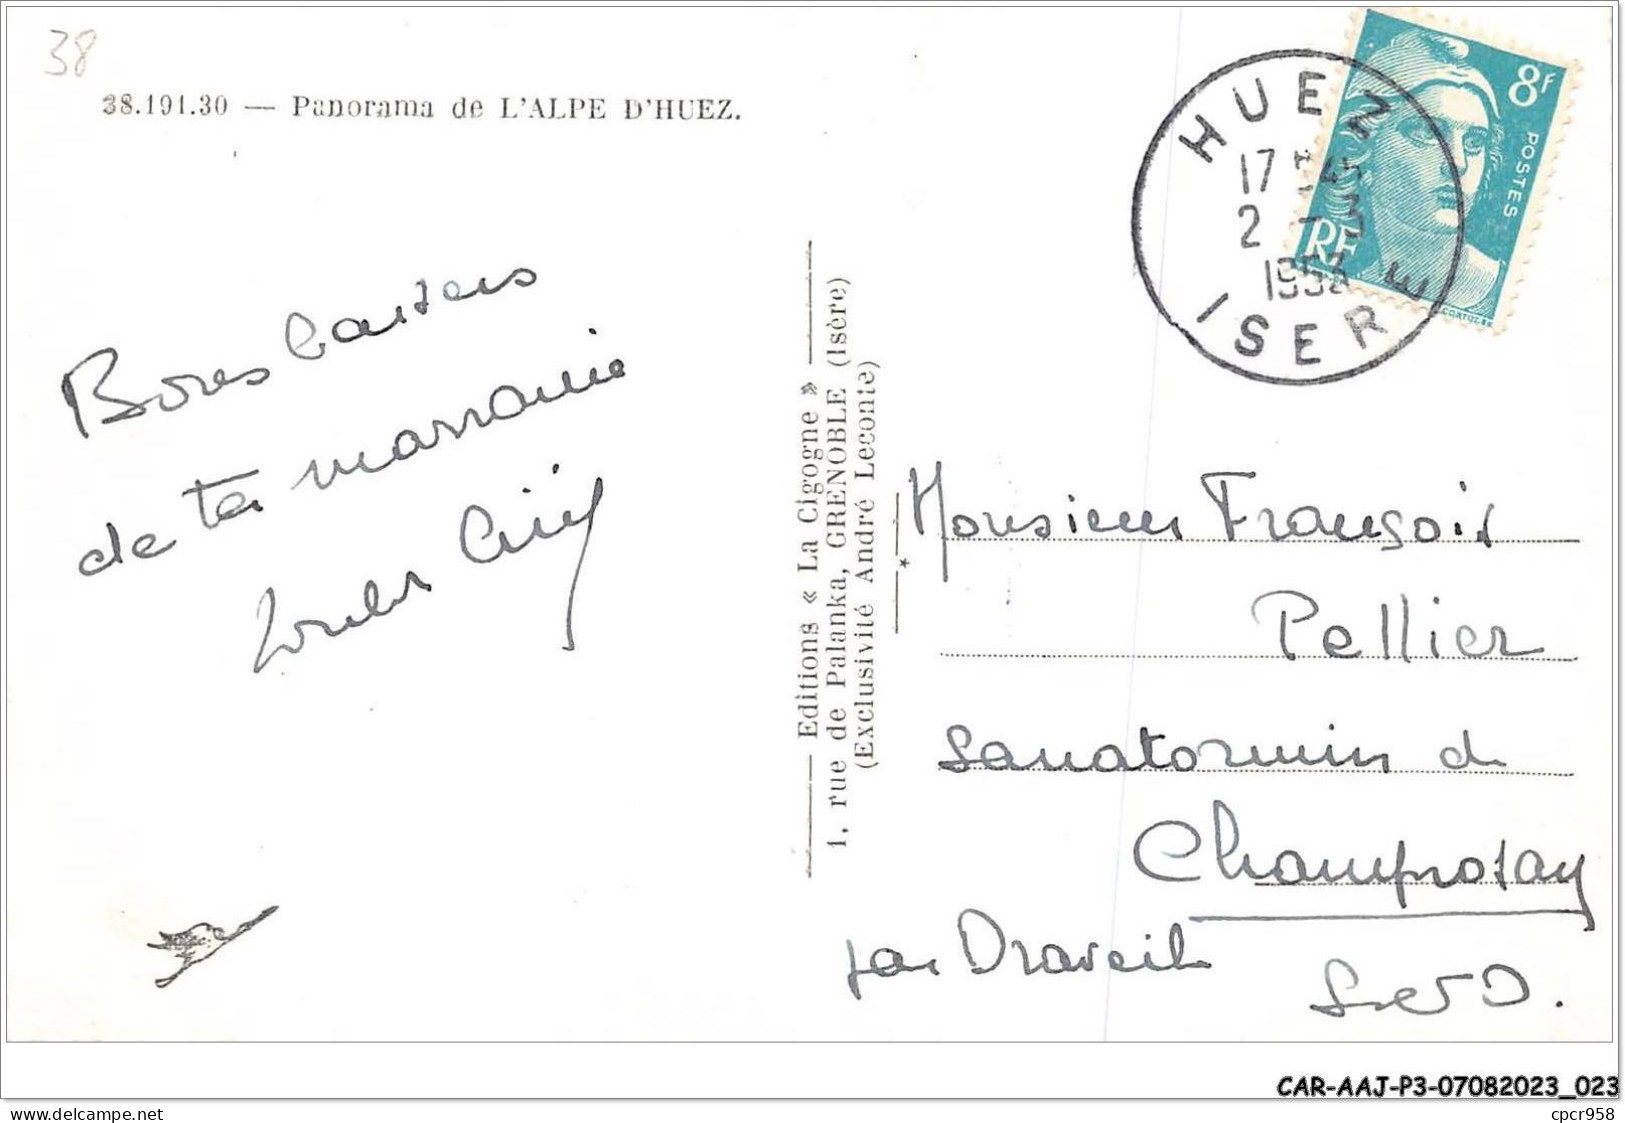 38
38.191.30 — Panorama de L'ALPE D'HUEZ.
Bons baisers
de ta marraine
Editions « La Cigogne »
1, rue de Palanka, GRENOBLE (Isère)
(Exclusivité André Leconte)
*
HUEZ
17
2 - 3
1953
ISERE
8F
POSTES
RF
CORTOT.EX
Monsieur François
Pellier
Sanatorium de
Champrosay
par Draveil
S et O.
CAR-AAJ-P3-07082023_023
cpcr958